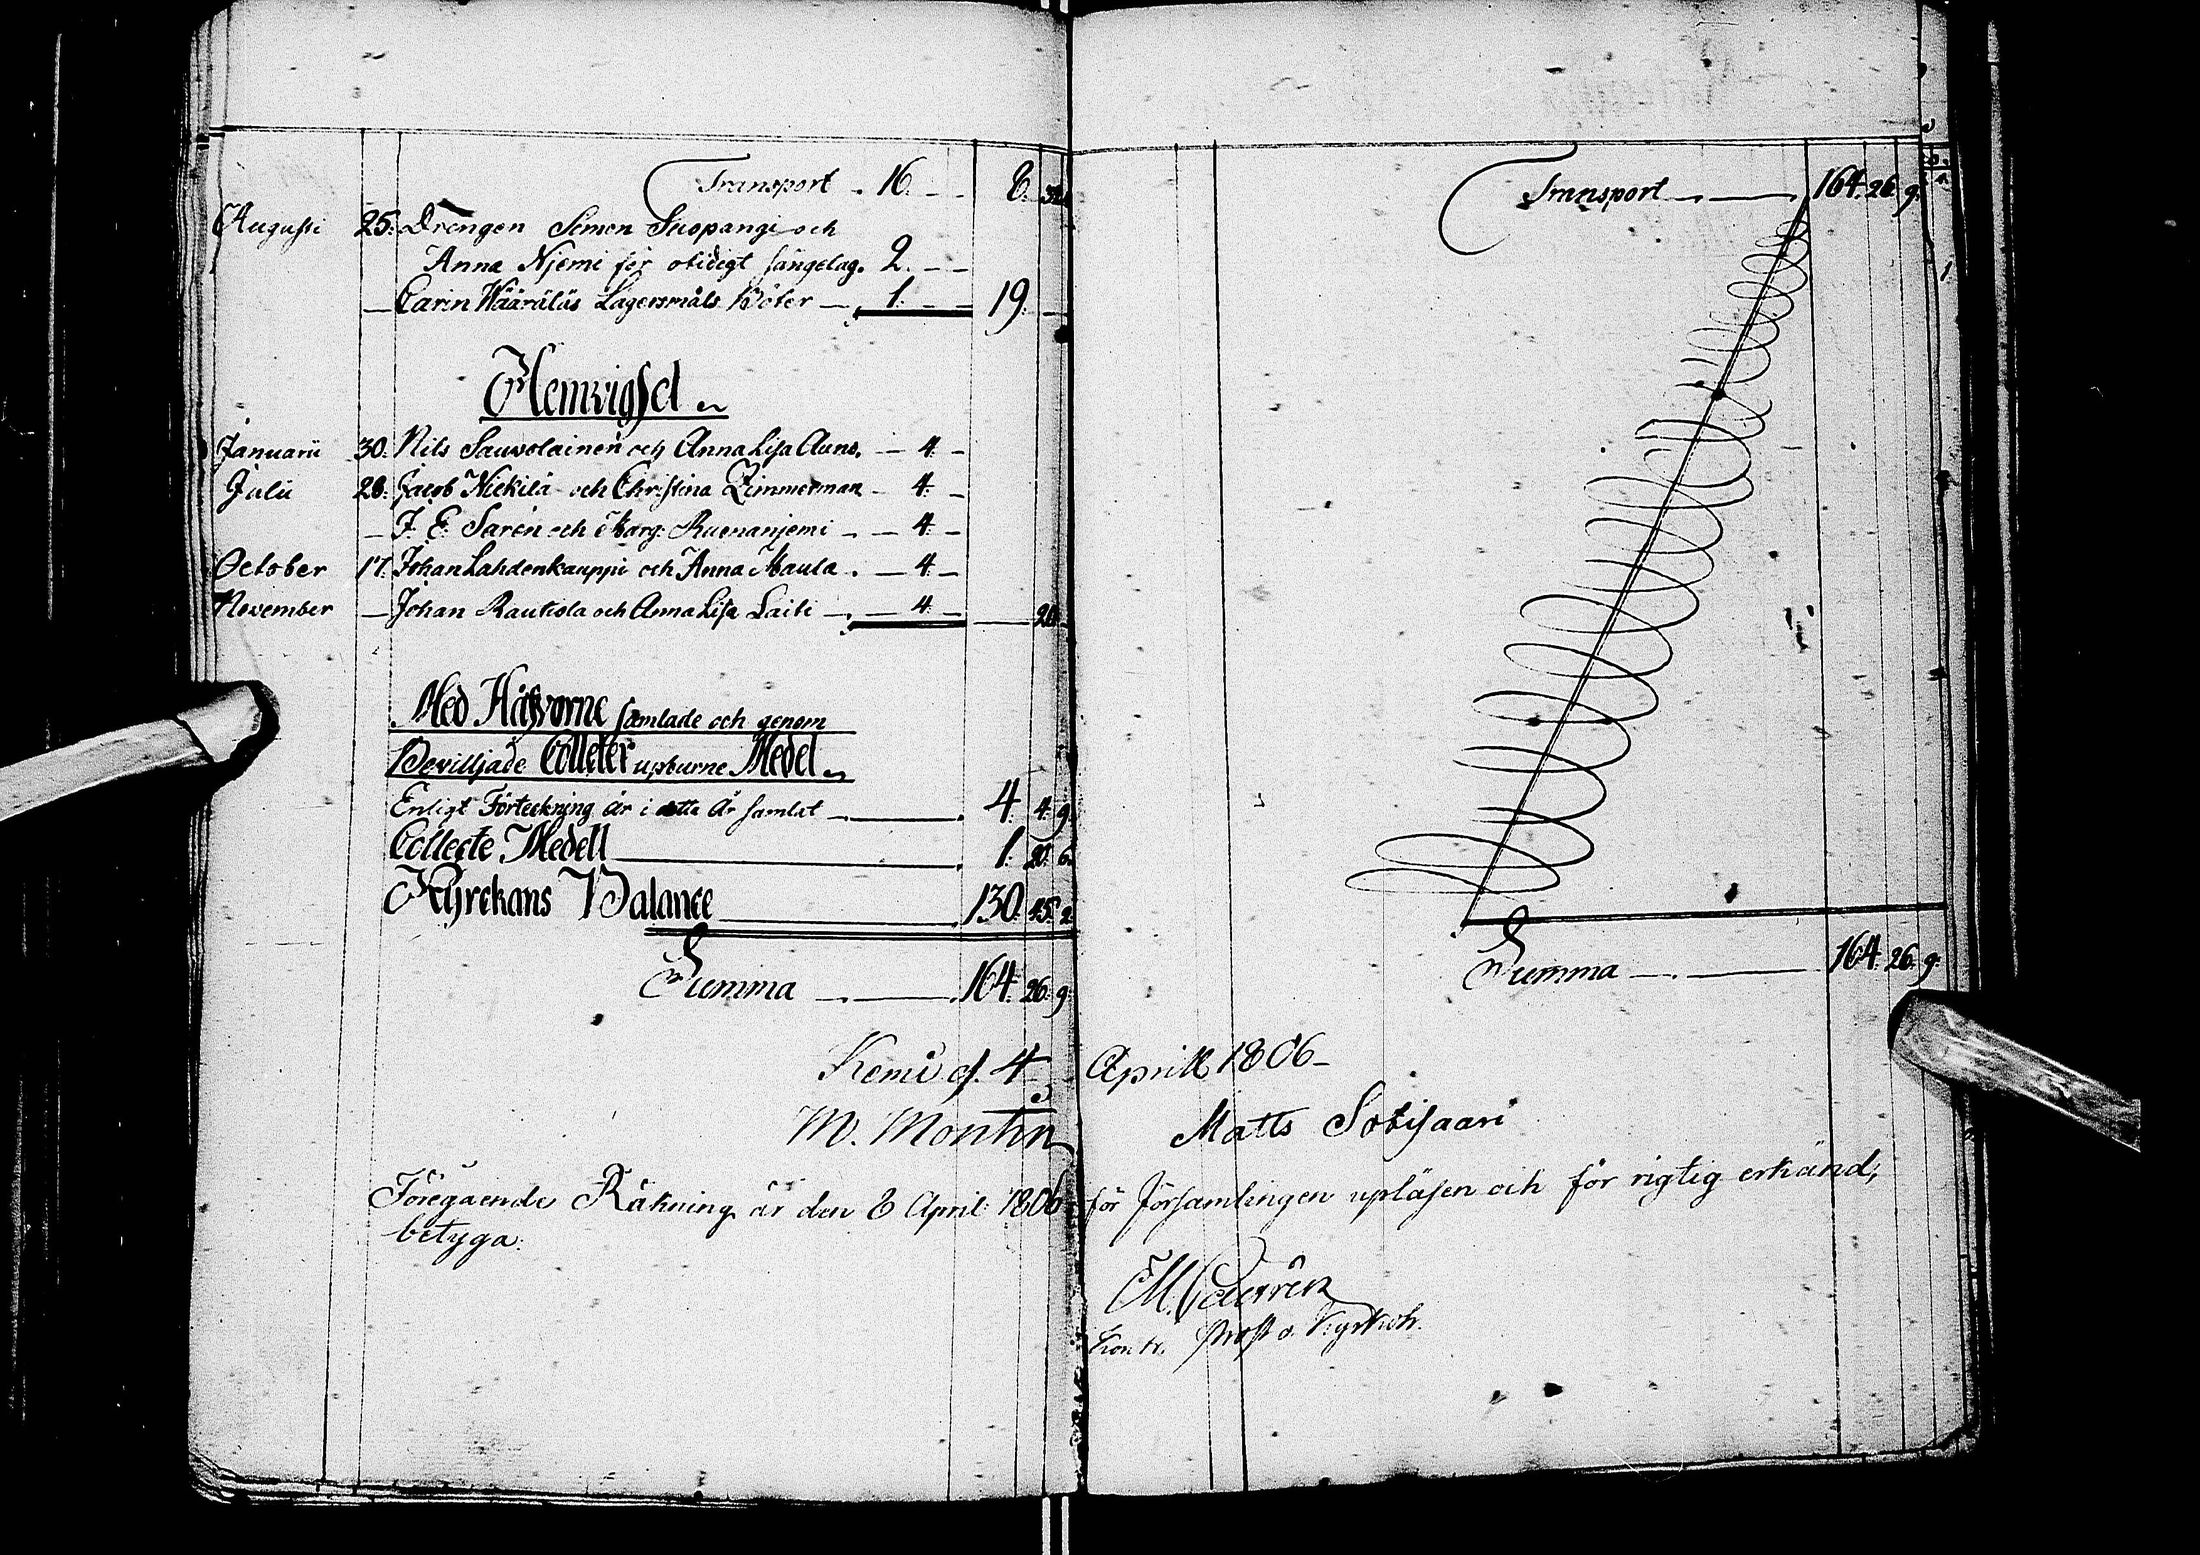 Transport - 16. - - 8. 32.
Augusti 25. Drängen Simon Suopangi och
Anna Njemi för otidigt sängelag. 2. - -
- Carin Wäärälös Lägersmåls Böter - 1. - - 19. -
Hemvigsel
Januarii 30. Nils Sauvolainen och Anna Lisa Auno. - 4. -
Julii 28. Jacob Nickilä och Christina Zimmerman - 4. -
- J. E. Sarén och Marg. Ruonanjemi - - 4. -
October 17. Johan Lahdenkauppi och Anna Maula . - 4. -
November - Johan Rautiola och Anna Lisa Laiti - - 4. - 20.
Med Håfvorne samlade och genom
Beviljade Colleter upburne Medel
Enligt Förteckning är i detta år samlat 4. 4. 9.
Collecte Medell 1. 20. 6.
Kyrckans Balance 130. 45. 2.
Summa 164. 26. 9.
Kemi d. 4
M. Montin
Föregaende Räkning är den 8 April 1806
betyga.
Transport 164. 26. 9.
Summa 164. 26. 9.
April 1806 -
Matts Sotisaari
för församlingen upläsen och för rigtig erkänd,
Prost o. Kyrkoh.